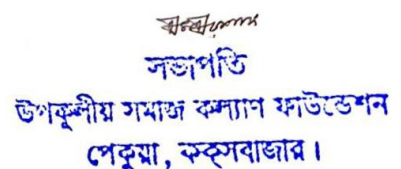 সভাপতি
উপকূলীয় সমাজ কল্যাণ ফাউন্ডেশন
পেকুয়া, কক্সবাজার।